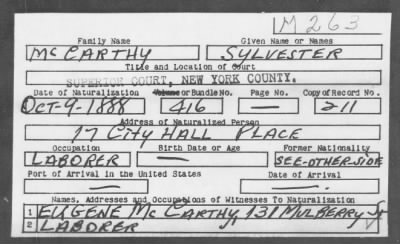 M 263
Family Name Given Name or Names
McCARTHY SYLVESTER
Title and Location of Court
SUPERIOR COURT, NEW YORK COUNTY.
Date of Naturalization Volume or Bundle No. Page No. Copy of Record No.
Oct-9-1888 416 — 211
Address of Naturalized Person
17 CITY HALL PLACE
Occupation Birth Date or Age Former Nationality
LABORER — SEE-OTHER-SIDE
Port of Arrival in the United States Date of Arrival
— —
Names, Addresses and Occupations of Witnesses To Naturalization
1 EUGENE McCARTHY, 131 MULBERRY St
2 LABORER